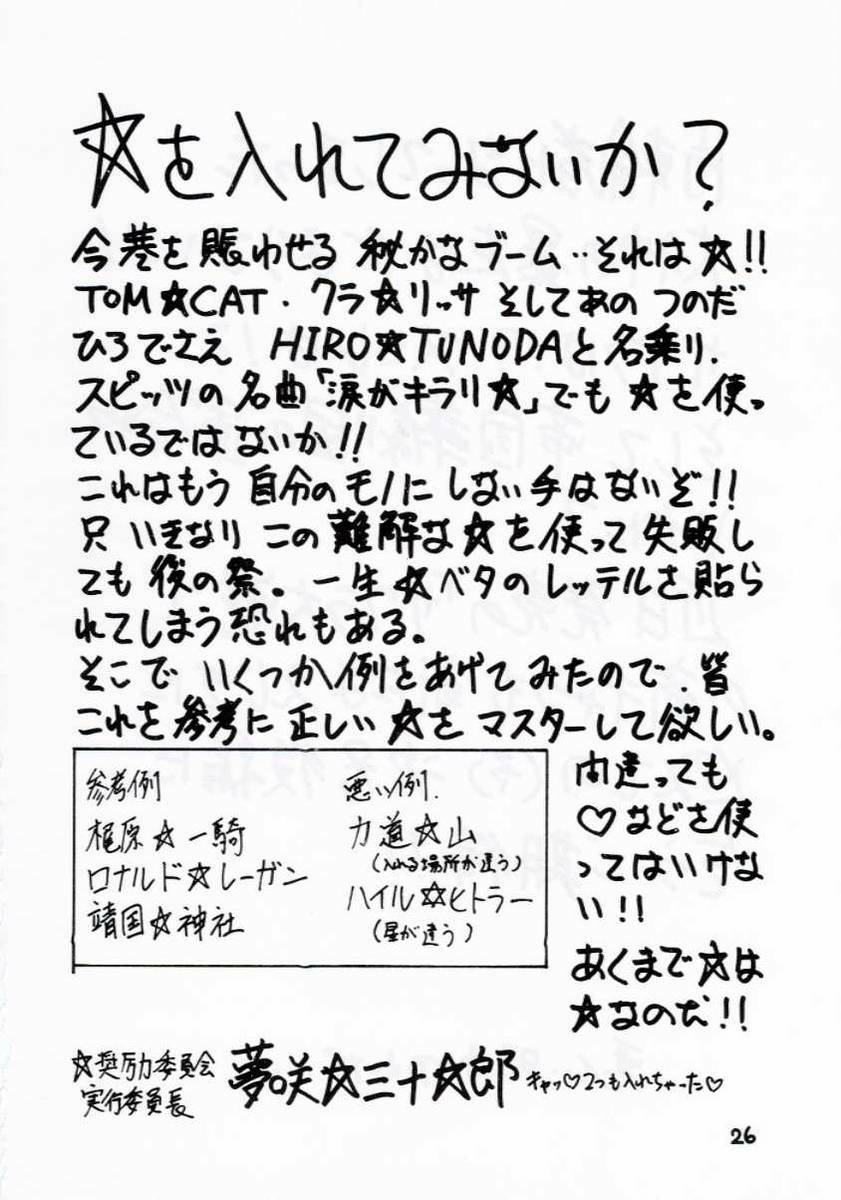 ☆を入れてみないか?
今巷を賑わせる 秘かなブーム‥それは☆!!
TOM☆CAT．クラ☆リッサ そしてあの つのだ
ひろでさえ HIRO☆TUNODAと名乗り．
スピッツの名曲「涙がキラリ☆」でも ☆を使っ
ているではないか!!
これはもう 自分のモノに しない手はないぞ!!
只 いきなり この難解な☆を使って失敗し
ても後の祭。一生☆ベタのレッテルを貼ら
れてしまう恐れもある。
そこで いくつか例をあげてみたので．皆
これを参考に 正しい ☆を マスターして欲しい。
参考例
梶原☆一騎
ロナルド☆レーガン
靖国☆神社
悪い例．
力道☆山
(入れる場所が違う)
ハイル✡ヒトラー
(星が違う)
間違っても
♡などを使
ってはいけな
い!!
あくまで☆は
☆なのだ!!
☆奨励委員会
実行委員長
夢咲☆三十☆郎 キャッ♡2つも入れちゃった♡
26